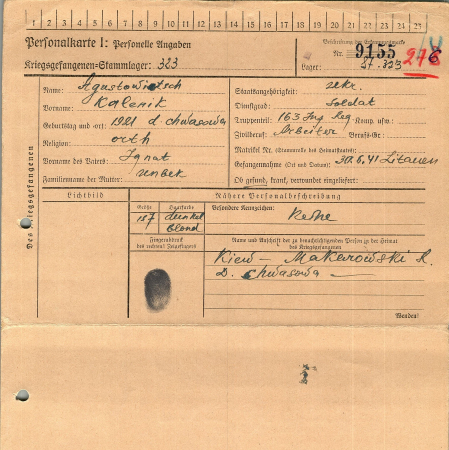 1 2 3 4 5 6 7 8 9 10 11 12 13 14 15 16 17 18 19 20 21 22 23 24 25
Personalkarte I: Personelle Angaben
Kriegsgefangenen-Stammlager: 323
Beschriftung der Erkennungsmarke
Nr. 9155
Lager: St. 323
276
Des Kriegsgefangenen
Name: Agustowietsch
Vorname: Kalenik
Geburtstag und -ort: 1921 d. Chwasowa
Religion: orth
Vorname des Vaters: Ignat
Familienname der Mutter: Unbek
Staatsangehörigkeit: ukr.
Dienstgrad: Soldat
Truppenteil: 163 Inf Reg Komp. usw.:
Zivilberuf: Arbeiter Berufs-Gr.:
Matrikel Nr. (Stammrolle des Heimatstaates):
Gefangennahme (Ort und Datum): 30.6.41 Litauen
Ob gesund, krank, verwundet eingeliefert:
Lichtbild
Nähere Personalbeschreibung
Größe
Haarfarbe
Besondere Kennzeichen:
157 dunkel
blond
Keine
Fingerabdruck
des rechten Zeigefingers
Name und Anschrift der zu benachrichtigenden Person in der Heimat
des Kriegsgefangenen
Kiew — Makarowski R.
D. Chwasowa —
Wenden!